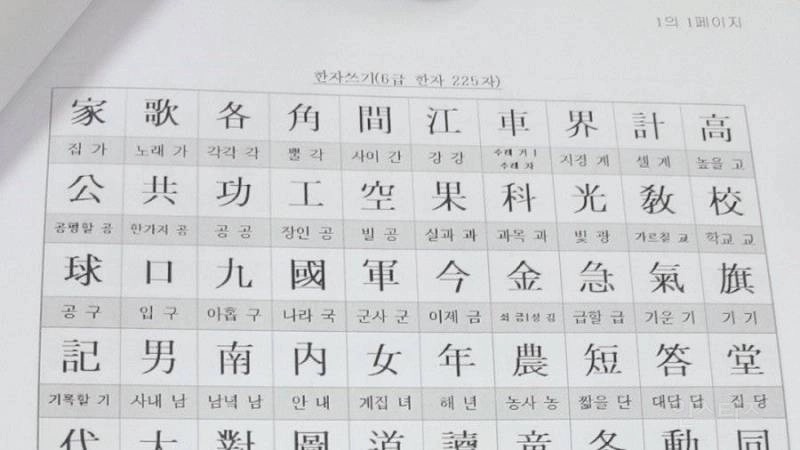 1의 1페이지
한자쓰기(6급 한자 225자)
家 歌 各 角 間 江 車 界 計 高
집 가 노래 가 각각 각 뿔 각 사이 간 강 강 수레 거| 수레 차 지경 계 셀 계 높을 고
公 共 功 工 空 果 科 光 敎 校
공평할 공 한가지 공 공 공 장인 공 빌 공 실과 과 과목 과 빛 광 가르칠 교 학교 교
球 口 九 國 軍 今 金 急 氣 旗
공 구 입 구 아홉 구 나라 국 군사 군 이제 금 쇠 금|성 김 급할 급 기운 기 기 기
記 男 南 內 女 年 農 短 答 堂
기록할 기 사내 남 남녘 남 안 내 계집 녀 해 년 농사 농 짧을 단 대답 답 집 당
代 大 對 圖 道 讀 童 冬 動 同